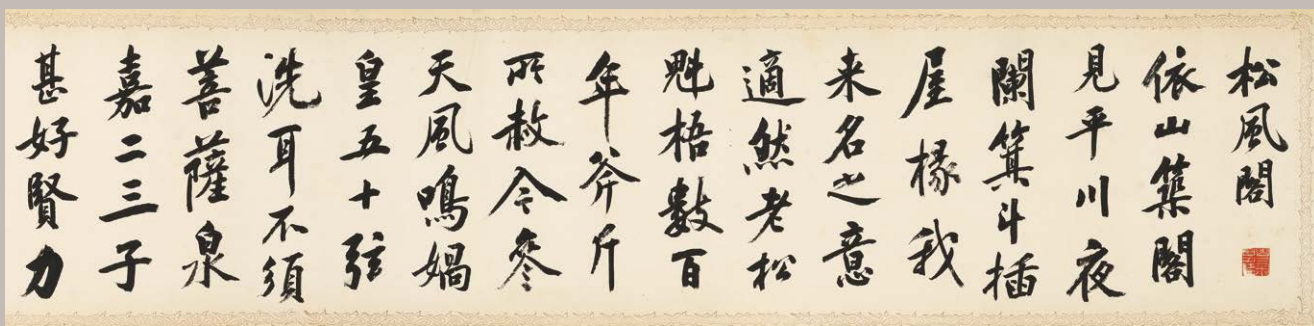 松風閣
依山築閣
見平川夜
闌箕斗插
屋椽我
来名之意
適然老松
魁梧數百
年斧斤
所赦今參
天風鳴媧
皇五十弦
洗耳不須
菩薩泉
嘉二三子
甚好賢力